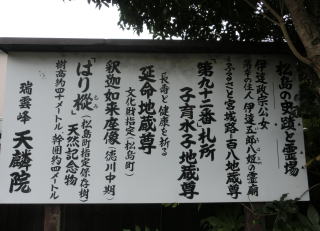 松島の史跡と霊場
伊達政宗公女
藩辛の住人 伊達五郎八姫の霊廟
ふるさと宮城路・百八地蔵尊
「第九十二番札所
子育水子地蔵尊
〈長寿と健康を祈る〉
延命地蔵尊
文化財指定(松島町)
釈迦如来座像(徳川中期)
「はり樅」(松島町指定保存樹)
もみ
天然記念物
樹高約四十メートル 幹囲約四メートル
瑞雲峰 天麟院